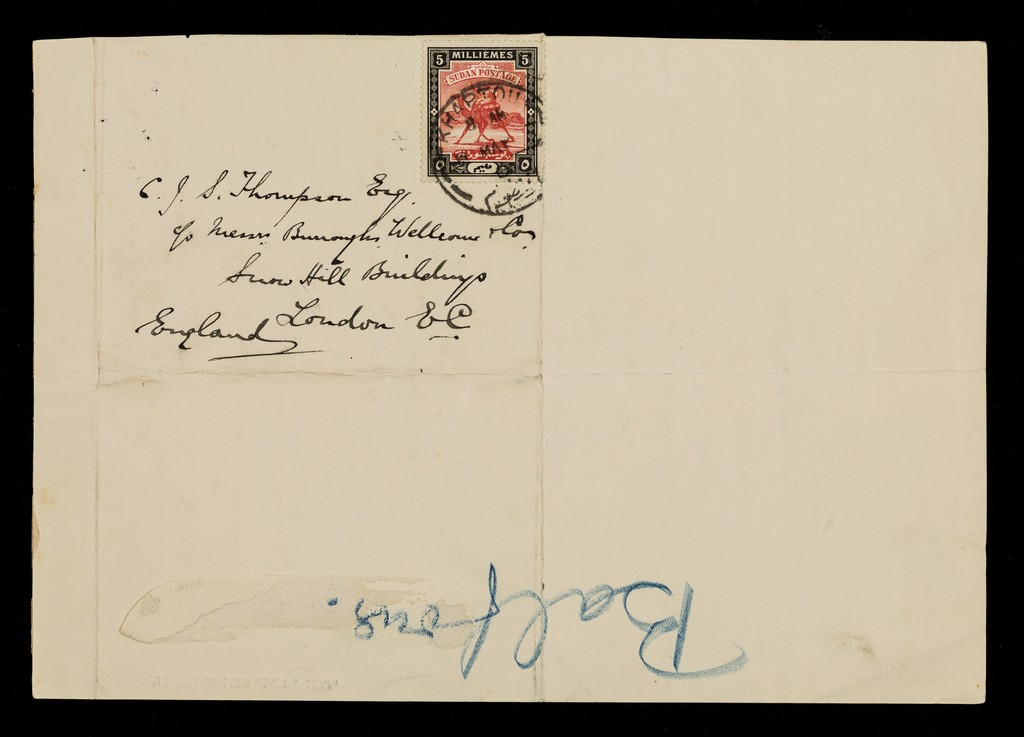 5 MILLIÈMES 5
SUDAN POSTAGE
KHARTOU
MAR
C. J. S. Thompson Esq.
c/o Messrs Burroughs Wellcome & Co,
Snow Hill Buildings
London EC
England
Balfour.